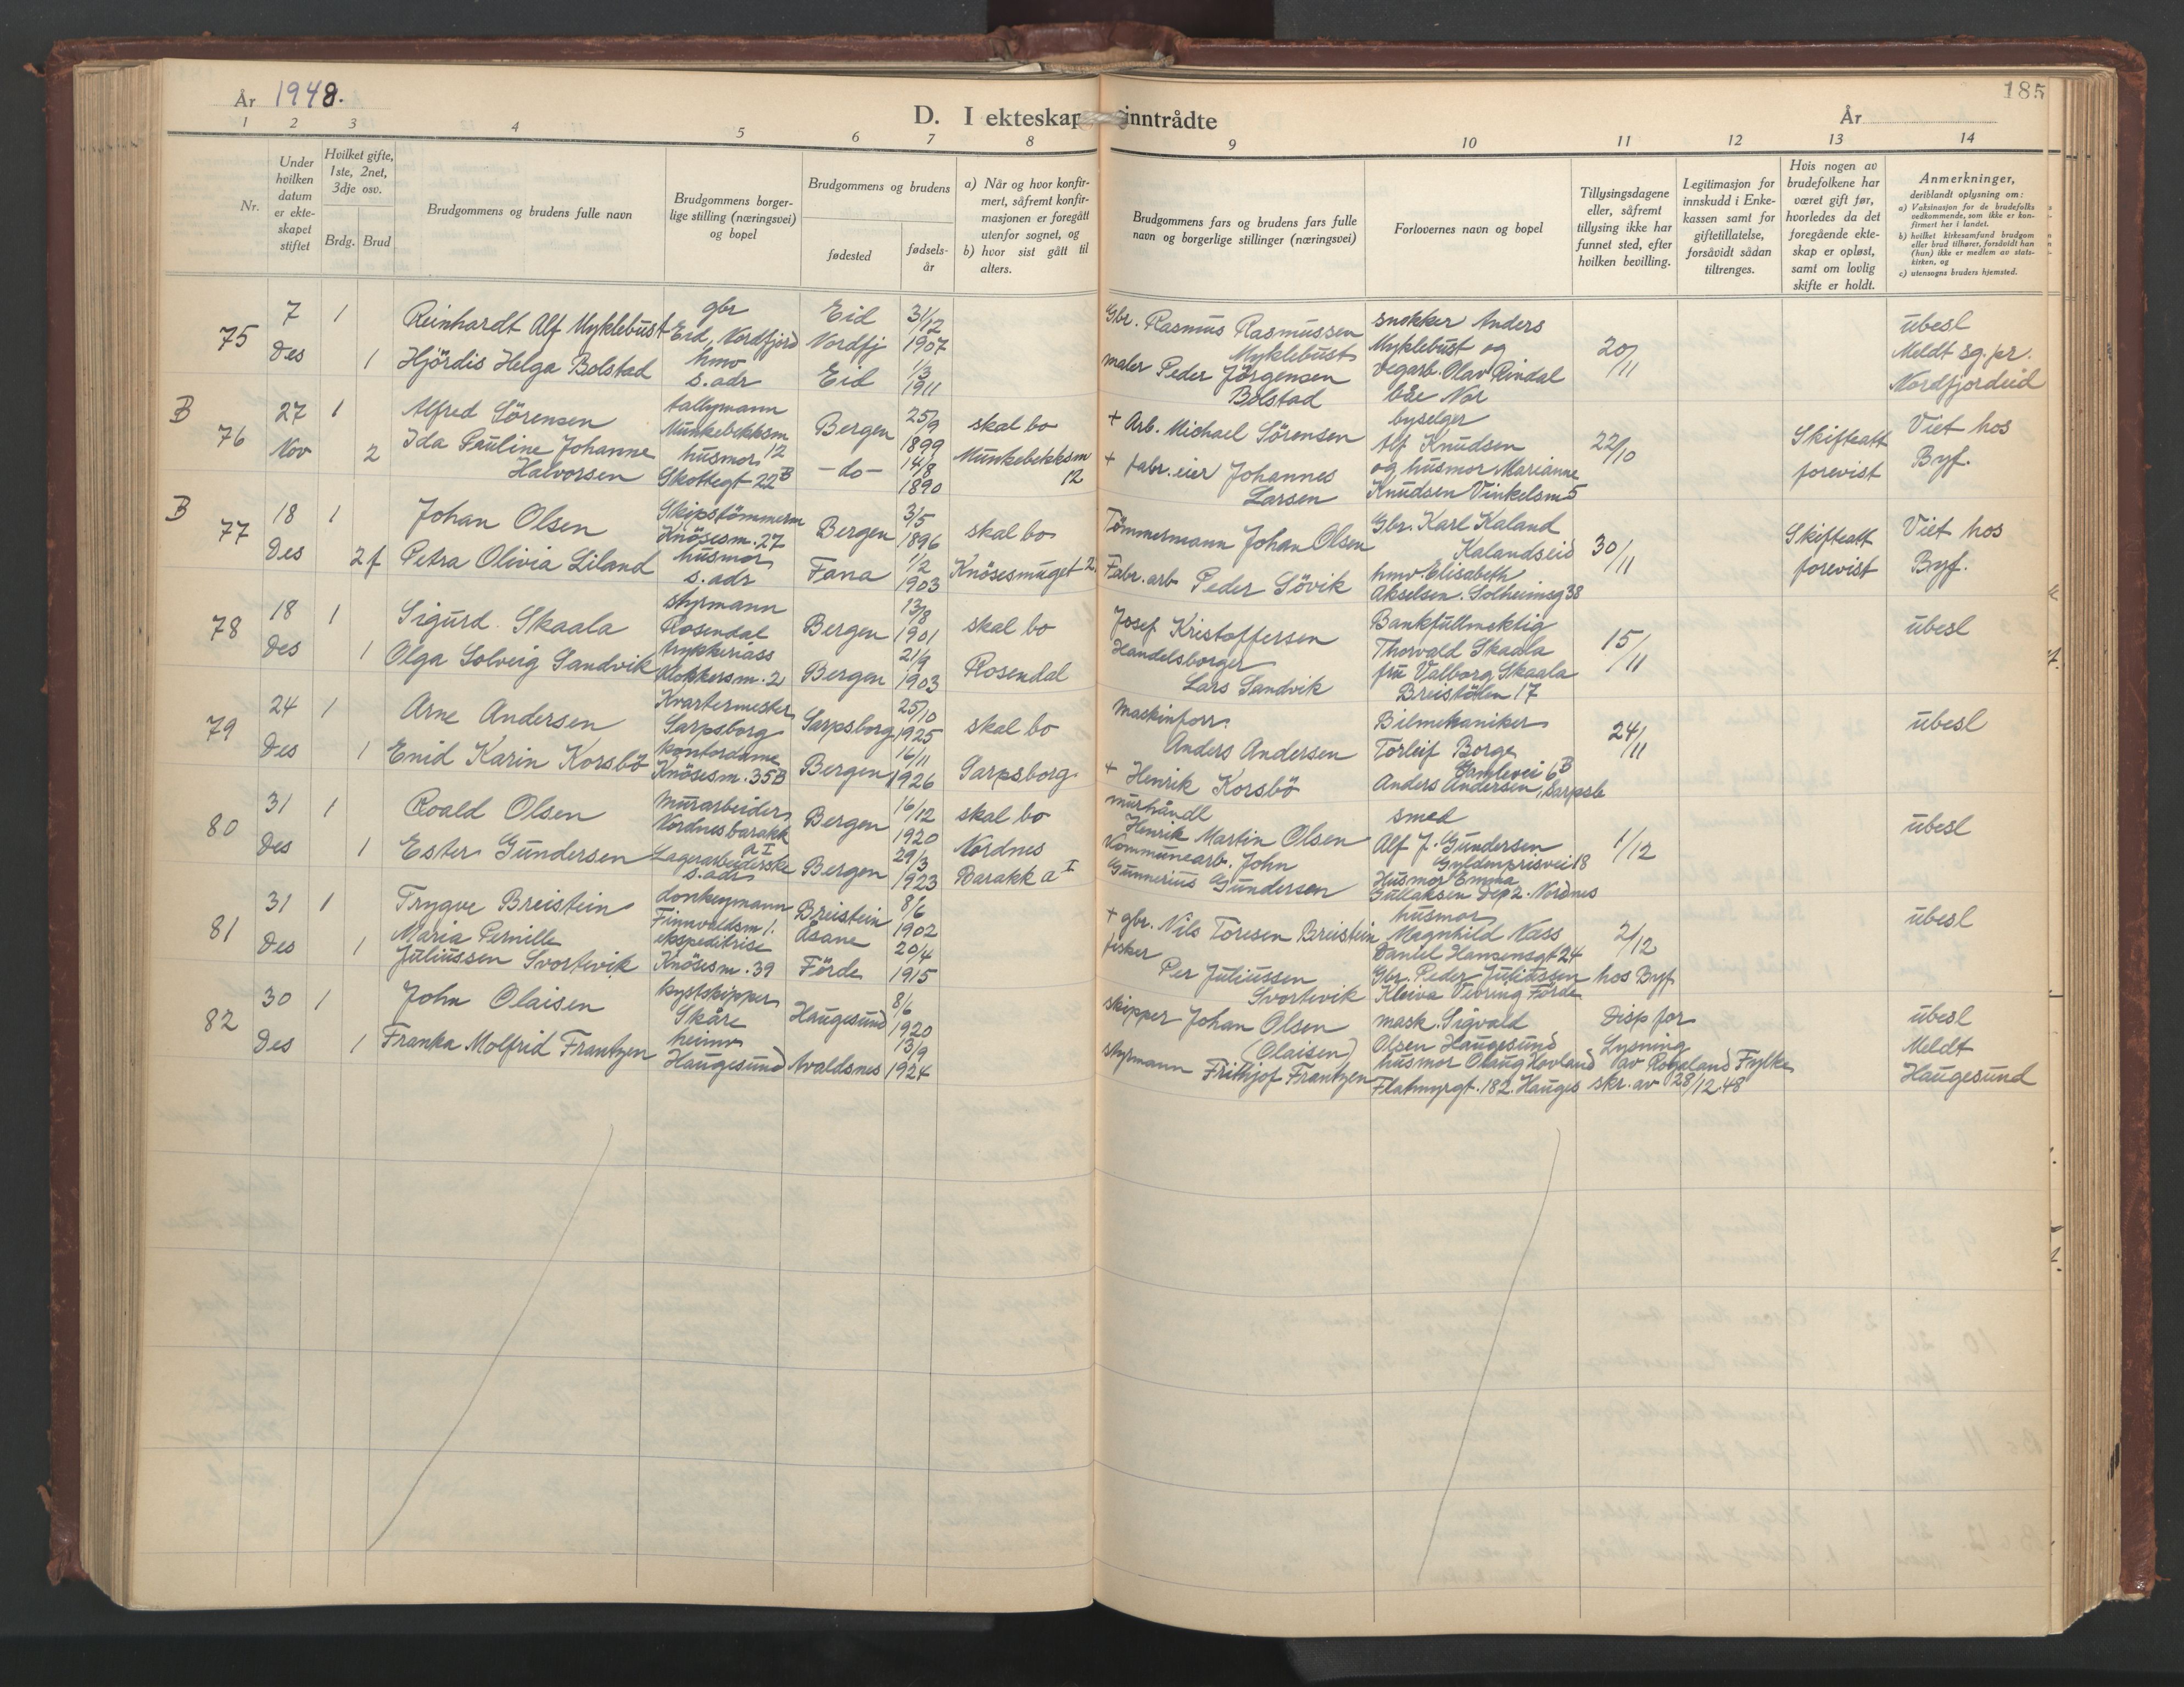 År 1948.
D. I ekteskap inntrådte
År
185
1 2 3 4 5 6 7 8 9 10 11 12 13 14
Nr.
Under hvilken datum er ekteskapet stiftet
Hvilket gifte, 1ste, 2net, 3dje osv.
Brdg. Brud
Brudgommens og brudens fulle navn
Brudgommens borgerlige stilling (næringsvei) og bopel
Brudgommens og brudens
fødested
fødselsår
a) Når og hvor konfirmert, såfremt konfirmasjonen er foregått utenfor sognet, og
b) hvor sist gått til alters.
Brudgommens fars og brudens fars fulle navn og borgerlige stillinger (næringsvei)
Forlovernes navn og bopel
Tillysingsdagene eller, såfremt tillysing ikke har funnet sted, efter hvilken bevilling.
Legitimasjon for innskudd i Enkekassen samt for giftetillatelse, forsåvidt sådan tiltrenges.
Hvis nogen av brudefolkene har været gift før, hvorledes da det foregående ekteskap er opløst, samt om lovlig skifte er holdt.
Anmerkninger,
deriblandt oplysning om:
a) Vaksinasjon for de brudefolks vedkommende, som ikke er konfirmert her i landet.
b) hvilket kirkesamfund brudgom eller brud tilhører, forsåvidt han (hun) ikke er medlem av statskirken, og
c) utensogns bruders hjemsted.
75
7 Des
1
1
Reinhardt Alf Myklebust
Hjördis Helga Bolstad
gbr
Eid, Nordfjord
hmv
s.adr
Eid
Nordfj
Eid
31/12
1907
1/3
1911
Gbr. Rasmus Rasmussen
Myklebust
maler Peder Jörgensen
Bolstad
snekker Anders
Myklebust og
vegarb. Olav Rindal
båe Nor
20/11
ubesl
Meldt sg.pr.
Nordfjordeid
B
76
27 Nov
1
2
Alfred Sörensen
Ida Pauline Johanne
Halvorsen
tallymann
Munkebekksm
12
husmor
Skottegt 22B
Bergen
-do-
25/9
1899
14/8
1890
skal bo
Munkebekksm
12
+ Arb. Michael Sörensen
+ fabr.eier Johannes
Larsen
byselger
Alf Knudsen
og husmor Marianne
Knudsen Vinkelsm 5
22/10
Skifteatt
forevist
Viet hos
Byf.
B
77
18 Des
1
2f
Johan Olsen
Petra Olivia Liland
Skipstömmerm
Knösesm. 27
husmor
s.adr
Bergen
Fana
3/5
1896
1/2
1903
skal bo
Knösesmuget 2
Tömmermann Johan Olsen
Fabr.arb Peder Sövik
Gbr. Karl Kaland
Kalandseid
hmv. Elisabeth
Akselsen. Solheimsg 38
30/11
Skifteatt
forevist
Viet hos
Byf.
78
18 Des
1
1
Sigurd Skaala
Olga Solveig Sandvik
styrmann
Rosendal
trykkeriass
Klokkersm. 2
Bergen
Bergen
13/8
1901
21/9
1903
skal bo
Rosendal
Josef Kristoffersen
Handelsborger
Lars Sandvik
Bankfullmektig
Thorvald Skaala
fru Valborg Skaala
Breistölen 17
15/11
ubesl
79
24 Des
1
1
Arne Andersen
Enid Karin Korsbö
Kvartermester
Sarpsborg
kontordame
Knösesm. 35B
Sarpsborg
Bergen
25/10
1925
16/11
1926
skal bo
Sarpsborg
Maskinforr.
Anders Andersen
+ Henrik Korsbö
Bilmekaniker
Torleif Borge
Gamlevei 6B
Anders Andersen, Sarpsb
24/11
ubesl
80
31 Des
1
1
Roald Olsen
Ester Gundersen
Murarbeider
Nordnesbarakk
a I
Lagerarbeiderske
s.adr
Bergen
Bergen
16/12
1920
29/3
1923
skal bo
Nordnes
Barakk a I
murhåndl
Henrik Martin Olsen
Kommunearb. John
Gunnerius Gundersen
smed
Alf J. Gundersen
Gyldenprisvei 18
Husmor Emma
Gullaksen Dep 2. Nordnes
1/12
ubesl
81
31 Des
1
1
Trygve Breistein
Maria Pernille
Juliussen Svortevik
donkeymann
Finnvoldsm 1.
ekspeditrise
Knösesm. 39
Breistein
Åsane
Förde
8/6
1902
20/4
1915
+ gbr. Nils Toresen Breistein
fisker
Per Juliussen
Svortevik
husmor
Magnhild Næss
Daniel Hansensgt 24
Gbr. Peder Juliussen
Kleiva Vevring Förde
2/12
hos Byf
ubesl
82
30 Des
1
1
John Olaisen
Franka Molfrid Frantzen
kystskipper
Skåre
heimv
Haugesund
Haugesund
Avaldsnes
8/6
1920
13/9
1924
skipper Johan Olsen
(Olaisen)
styrmann Frithjof Frantzen
mask. Sigvald
Olsen Haugesund
husmor Olaug Hovland
Flatmyrgt. 182. Hauges
Disp for
Lysning
av Rogaland Fylke
skr. av 28/12.48
ubesl
Meldt
Haugesund